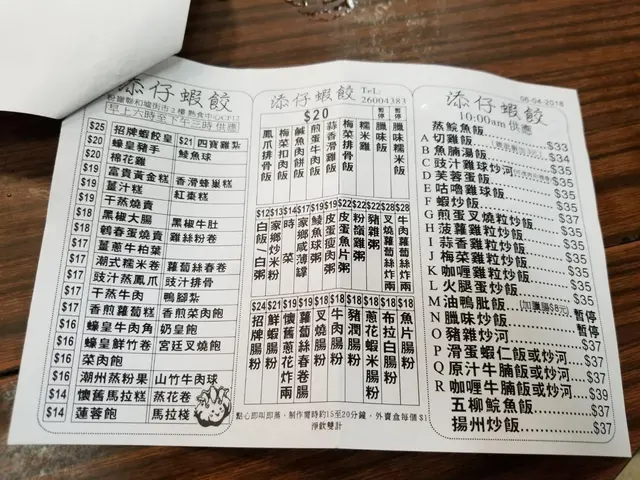 添仔蝦餃
粉嶺聯和墟街市2樓熟食中心CF12
早上六時至下午三時 供應
$25 招牌蝦餃皇 $21 四寶雞紮
$20 蠔皇豬手 鯪魚球
$20 棉花雞
$19 富貴黃金糕 香滑蜂巢糕
$19 薑汁糕 紅棗糕
$19 干蒸燒賣
$18 黑椒大腸 黑椒牛肚
$18 鵪春蛋燒賣 雞絲粉卷
$17 薑蔥牛柏葉
$17 潮式糯米卷 蘿蔔絲春卷
$17 豉汁蒸鳳爪 豉汁排骨
$17 干蒸牛肉 鴨腳紮
$17 香煎蘿蔔糕 香煎菜肉飽
$16 蠔皇牛肉角 奶皇飽
$16 蠔皇鮮竹卷 宮廷叉燒飽
$16 菜肉飽
$16 潮州蒸粉果 山竹牛肉球
$14 懷舊馬拉糕 蒸花卷
$14 蓮蓉飽 馬拉棧
添仔蝦餃
TeL:
26004383
$20
暫停 臘味飯
暫停 臘味糯米飯
糯米雞
梅菜排骨飯
蒜香滑雞飯
煎蛋牛肉飯
鹹魚肉餅飯
梅菜扣肉飯
鳳爪排骨飯
$28 牛肉蘿蔔絲炸兩
$28 叉燒蘿蔔絲炸兩
$22 豬雜粥
$22 粉嶺雞粥
$22 皮蛋魚片粥
$21 皮蛋瘦肉粥
$19 鯪魚球粥
$19 家鄉咸薄罉
$14 時菜
$13 家鄉炒米粉
$12 白飯\白粥
$18 魚片腸粉
$18 布拉白腸粉
$18 蔥花蝦米腸粉
$18 豬潤腸粉
$18 牛肉腸粉
$18 叉燒腸粉
$19 蘿蔔絲春卷腸
$19 懷舊蔥花炸兩
$21 鮮蝦腸粉
$24 招牌腸粉
點心即叫即蒸，制作需時約15至20分鐘，外賣盒每個 $1
淨飲雙計
06-04-2018
添仔蝦餃
10:00am 供應
蒸鯇魚飯 $33
A 切雞飯 $34
B 魚腩湯飯 $35
C 豉汁雞球炒河 $35
D 芙蓉蛋飯 $35
E 咕嚕雞球飯 $35
F 蝦炒飯 $37
G 煎蛋叉燒粒炒飯 $35
H 菠蘿雞粒炒飯 $35
I 蒜香雞粒炒飯 $35
J 梅菜雞粒炒飯 $35
K 咖喱雞粒炒飯 $35
L 火腿蛋炒飯 $35
M 油鴨肶飯 (加臘腸$8元) 暫停
N 臘味炒飯 暫停
O 豬雜炒河 $37
P 滑蛋蝦仁飯或炒河 $37
Q 原汁牛腩飯或炒河 $37
R 咖喱牛腩飯或炒河 $39
五柳鯇魚飯 $37
揚州炒飯 $37